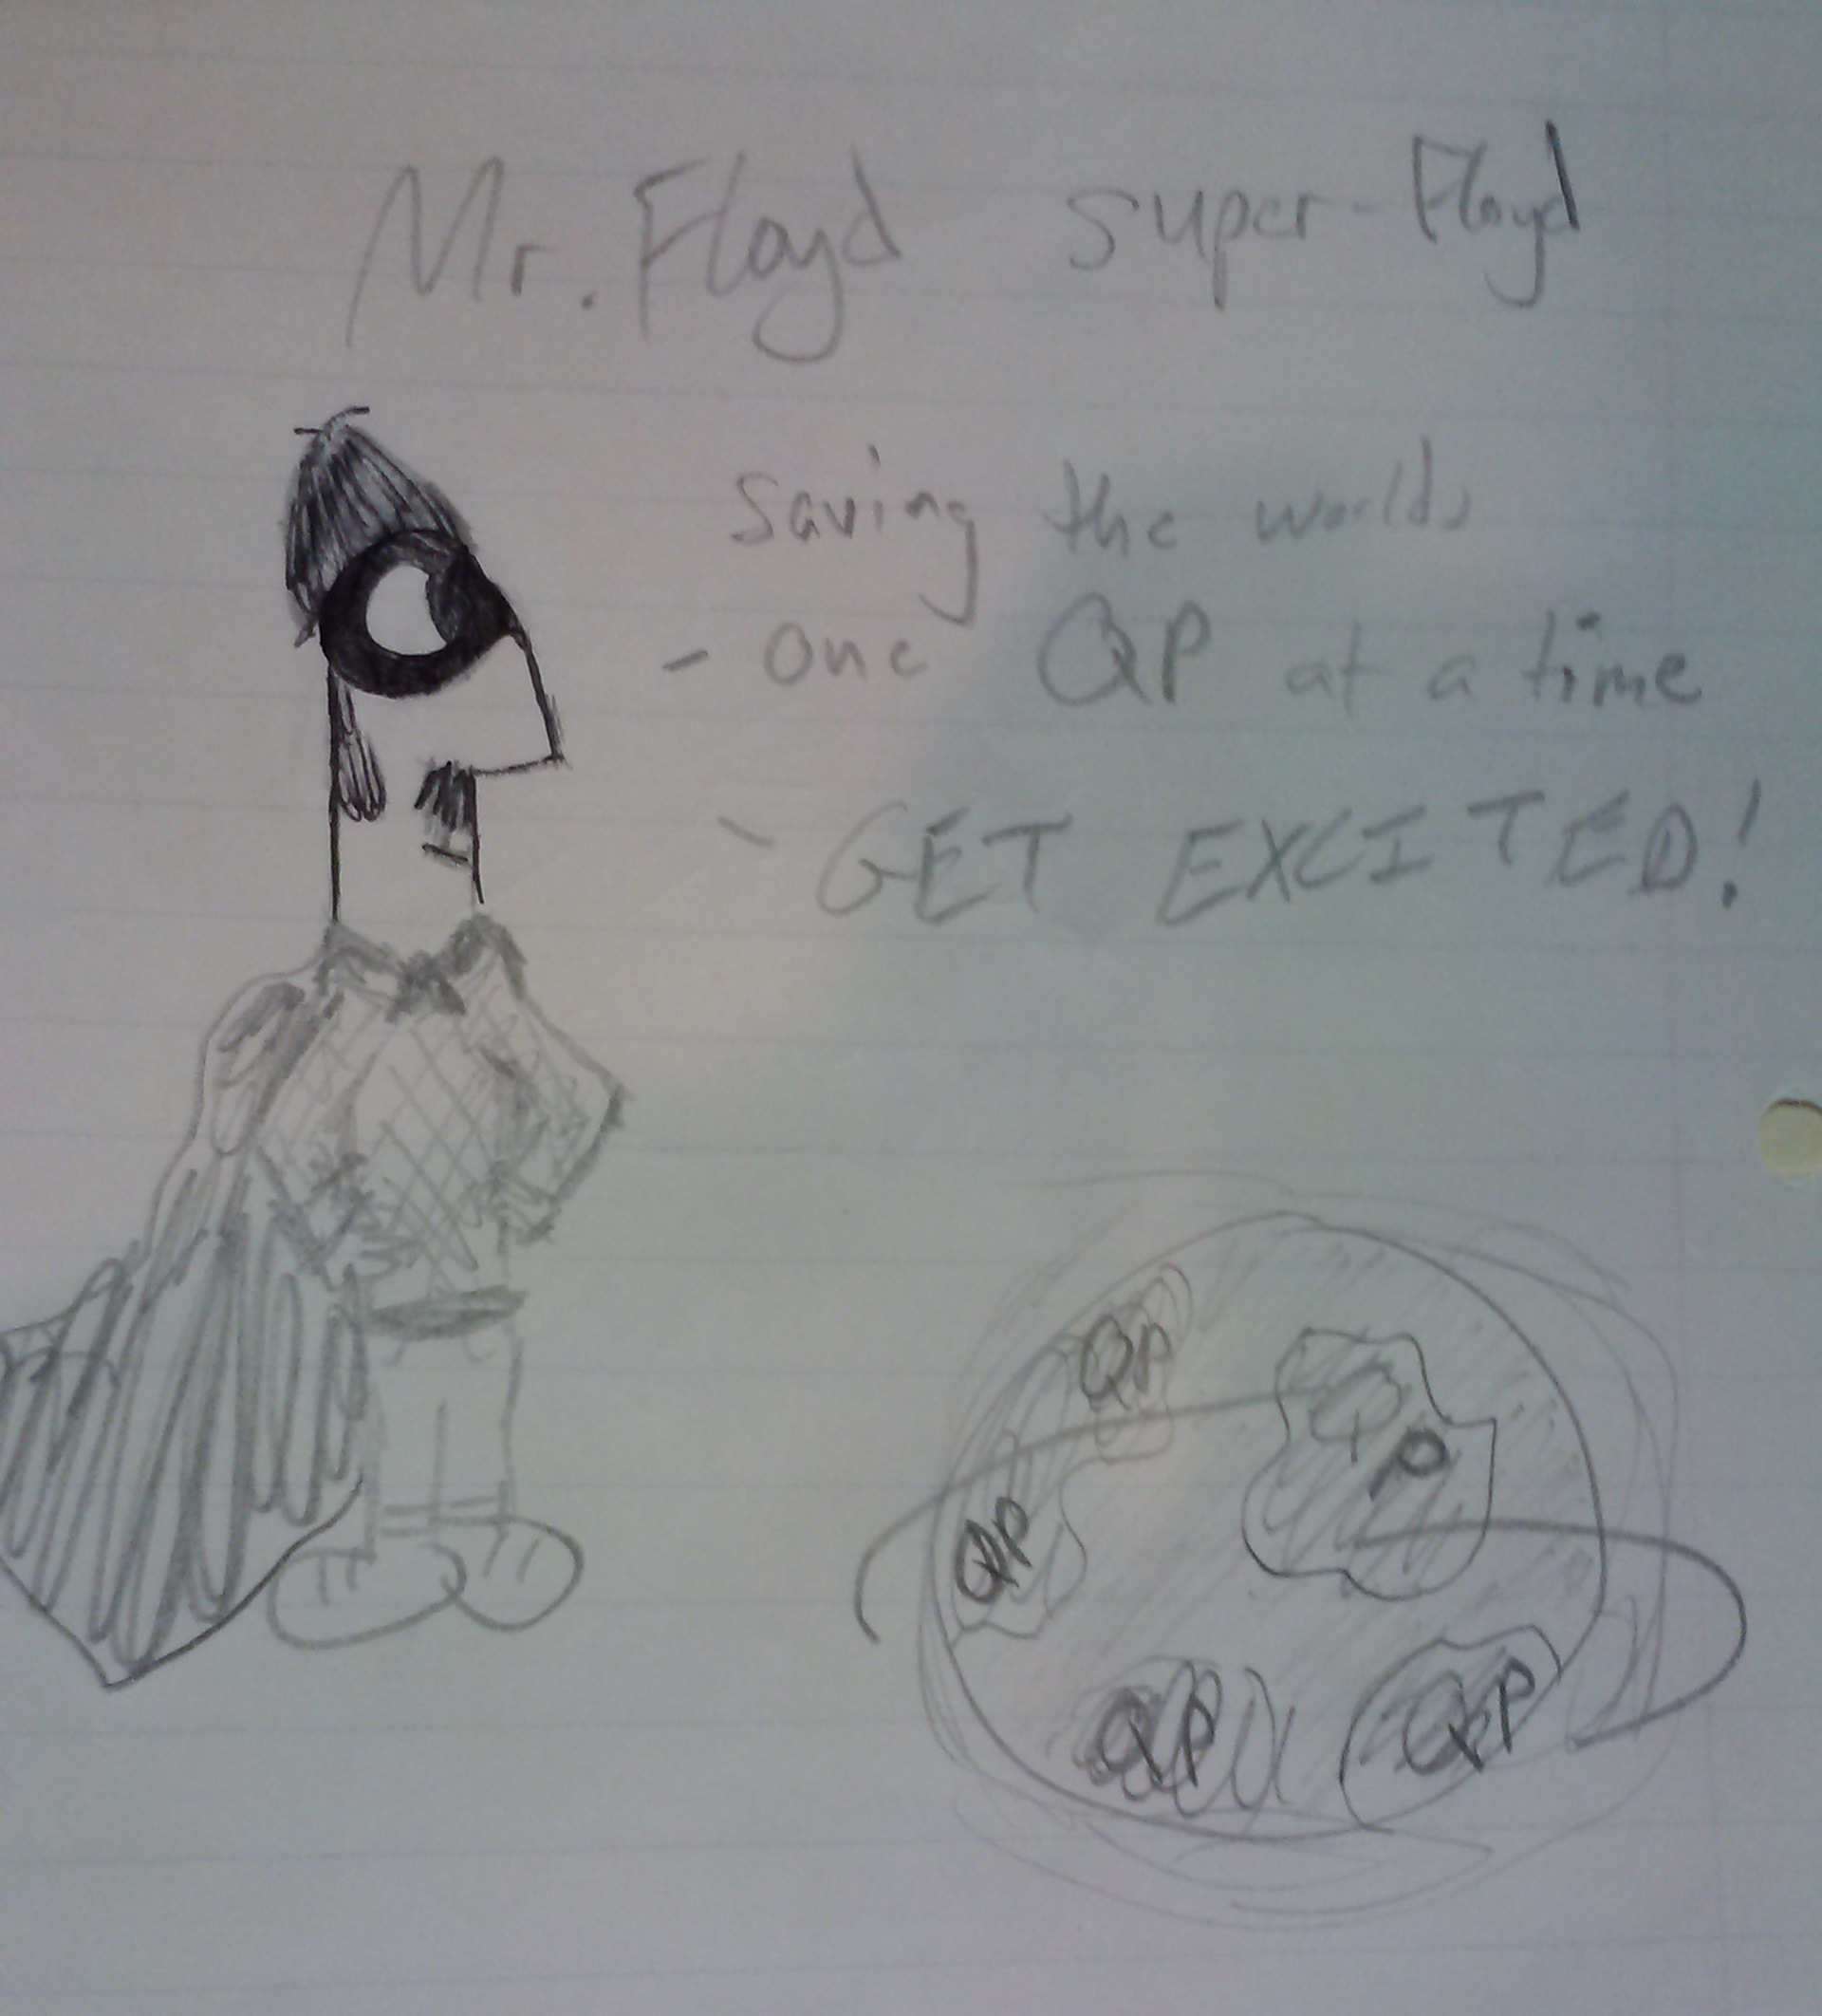 Mr. Floyd super-Floyd
saving the world,
- one QP at a time
- GET EXCITED!
QP
QP
QP
QP
QP